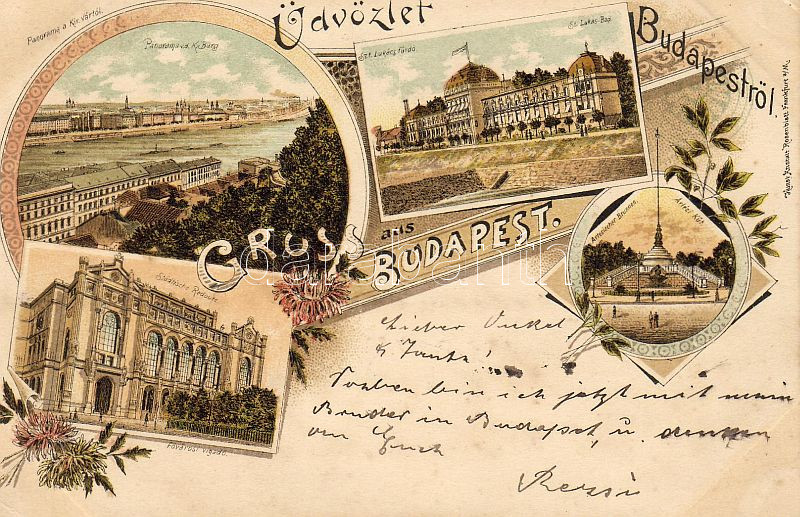 Üdvözlet
Budapestről!
Panorama a Kir. vártól.
Panorama v.d. Kg. Burg
Szt. Lukács fürdő.
St. Lukas-Bad
Gruss
aus
Budapest.
Städtische Redoute
Fővárosi vigadó.
Artesischer Brunnen.
Artézi Kút.
Lieber Onkel
& Tante!
Soeben bin ich jetzt mit mein
Bruder in Budapest, u. denken
an Euch